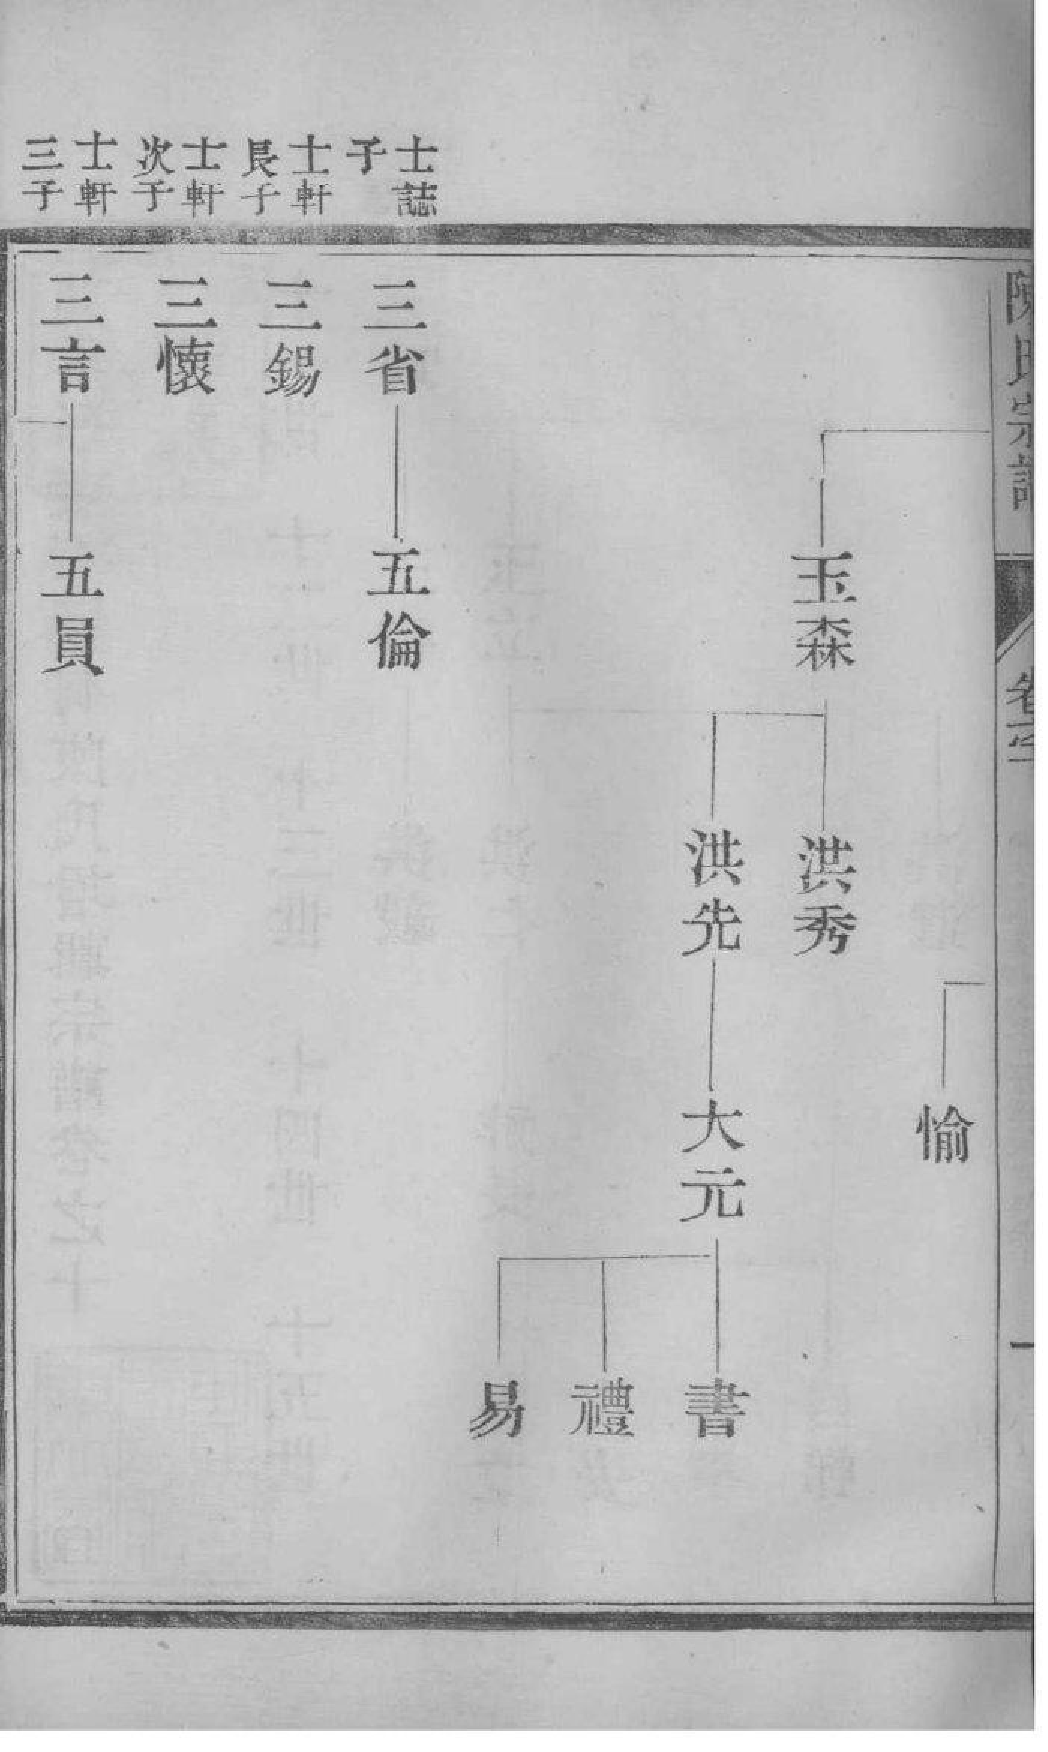 陳氏宗譜
愉
玉森
洪秀
洪先
大元
書
禮
易
士誌
子
三省
五倫
士軒
長子
三錫
士軒
次子
三懷
士軒
三子
三言
五員